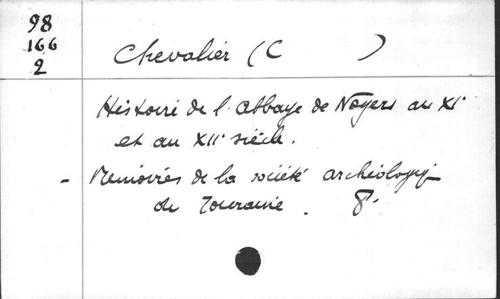 98
166
2
Chevalier (C )
Histoire de l'abbaye de Noyers au XIe
et au XIIe siècle.
- Memoires de la société archéologiq
de Touraine. 8°.